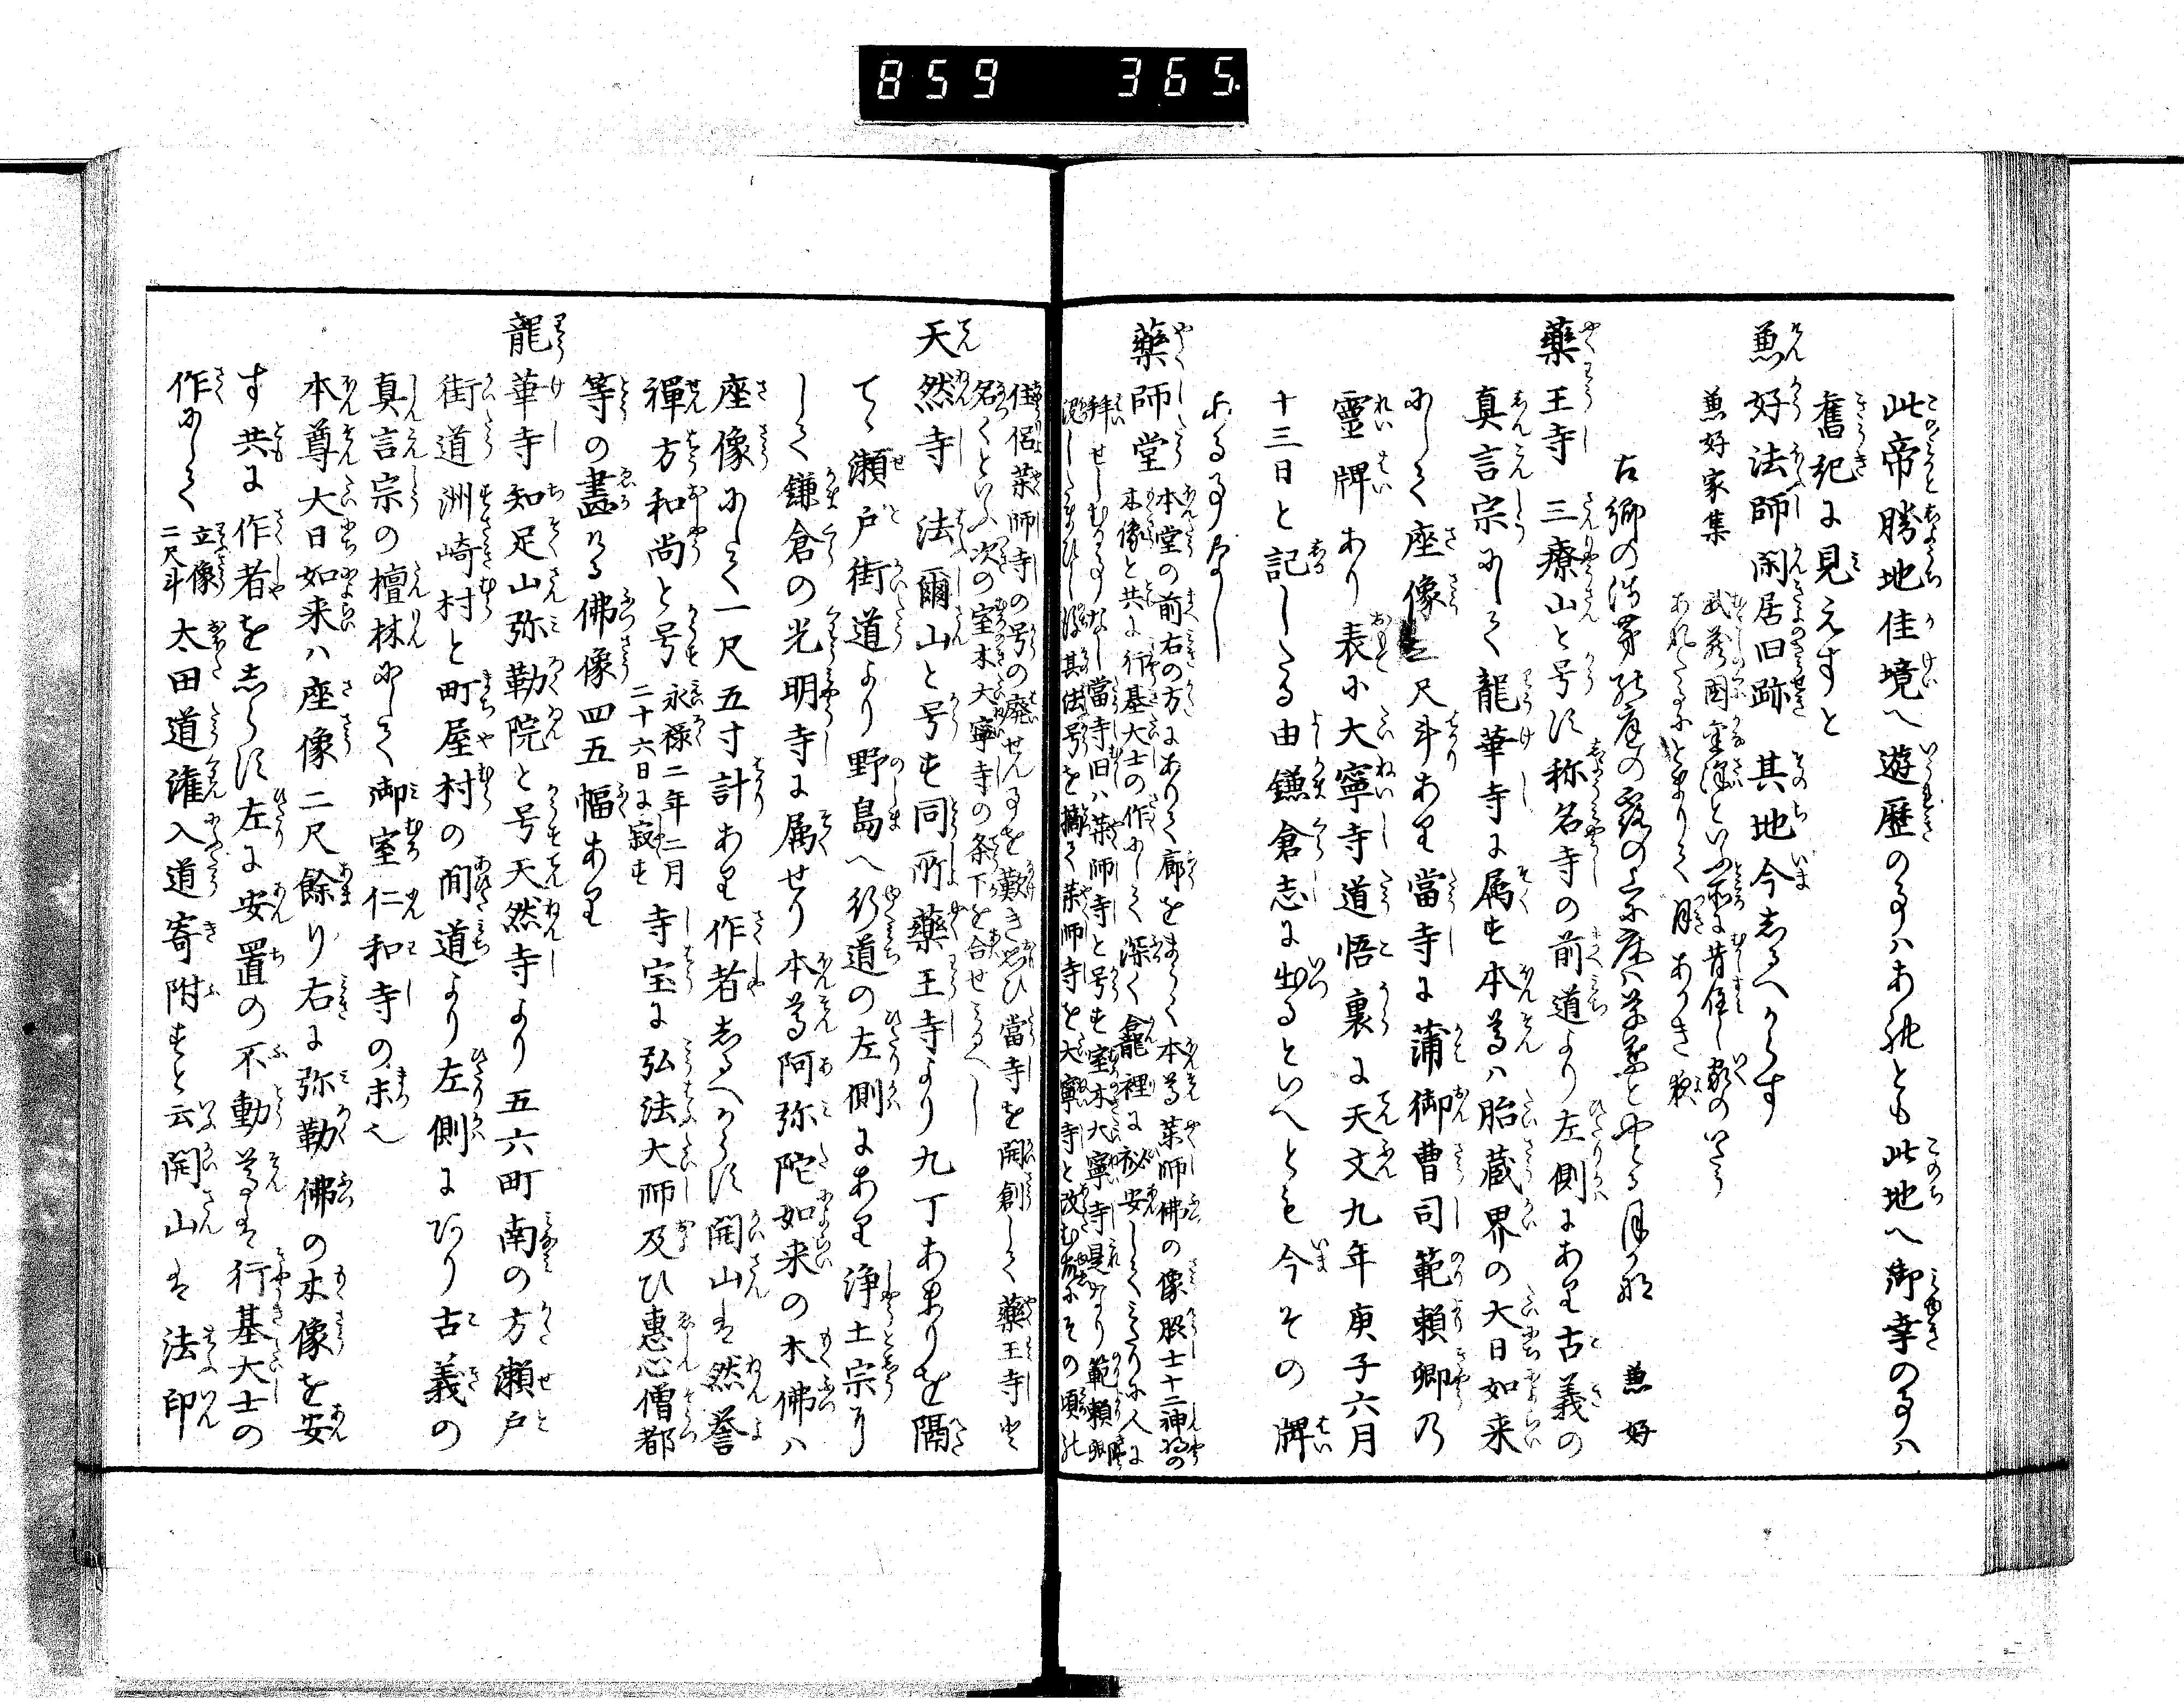 859 365.
此帝勝地佳境へ遊歴の事ハあれとも此地へ御幸の事ハ
舊紀に見えすと
兼好法師閑居旧跡 其地今しるへからす
兼好家集
武蔵国金澤といふ所に昔住し家のいたう
あれたるにとまりて月あかき夜
古郷の浅茅か庭の露の上に床ハ草葉とやとる月かな 兼好
薬王寺 三療山と号す称名寺の前道より左側にあり古義の
真言宗にして龍華寺に属す本尊ハ胎蔵界の大日如来
にして座像二尺斗あり當寺に蒲御曹司範頼卿乃
霊牌あり表に大寧寺道悟裏に天文九年庚子六月
十三日と記したる由鎌倉志に出るといへとも今その牌
よる事なし
薬師堂 本堂の前右の方にありて廊をまうく本尊薬師佛の像脇士十二神将の
木像と共に行基大士の作にして深く龕裡に秘安してみたりに人に
拝せしむる事なし當寺旧ハ薬師寺と号す室木大寧寺是なり範頼卿
没したまひし後其法号を摘て薬師寺を大寧寺と改む故にその頃の
住侶薬師寺の号の廃せん事を歎き思ひ當寺を開創して薬王寺と
名くといふ次の室木大寧寺の条下を合せみるへし
天然寺 法爾山と号す同所薬王寺より九丁あまりを隔
てゝ瀬戸街道より野島へ行道の左側にあり浄土宗に
して鎌倉の光明寺に属せり本尊阿弥陀如来の木佛ハ
座像にして一尺五寸計あり作者しるへからす開山は然誉
禪方和尚と号す永禄二年二月
二十六日に寂す寺宝に弘法大師及ひ惠心僧都
等の畫ける佛像四五幅あり
龍華寺 知足山弥勒院と号す天然寺より五六町南の方瀬戸
街道洲崎村と町屋村の間道より左側にあり古義の
真言宗の檀林にして御室仁和寺の末也
本尊大日如来ハ座像二尺餘り右に弥勒佛の木像を安
す共に作者を志らす左に安置の不動尊は行基大士の
作にして立像
二尺斗太田道潅入道寄附すと云開山は法印